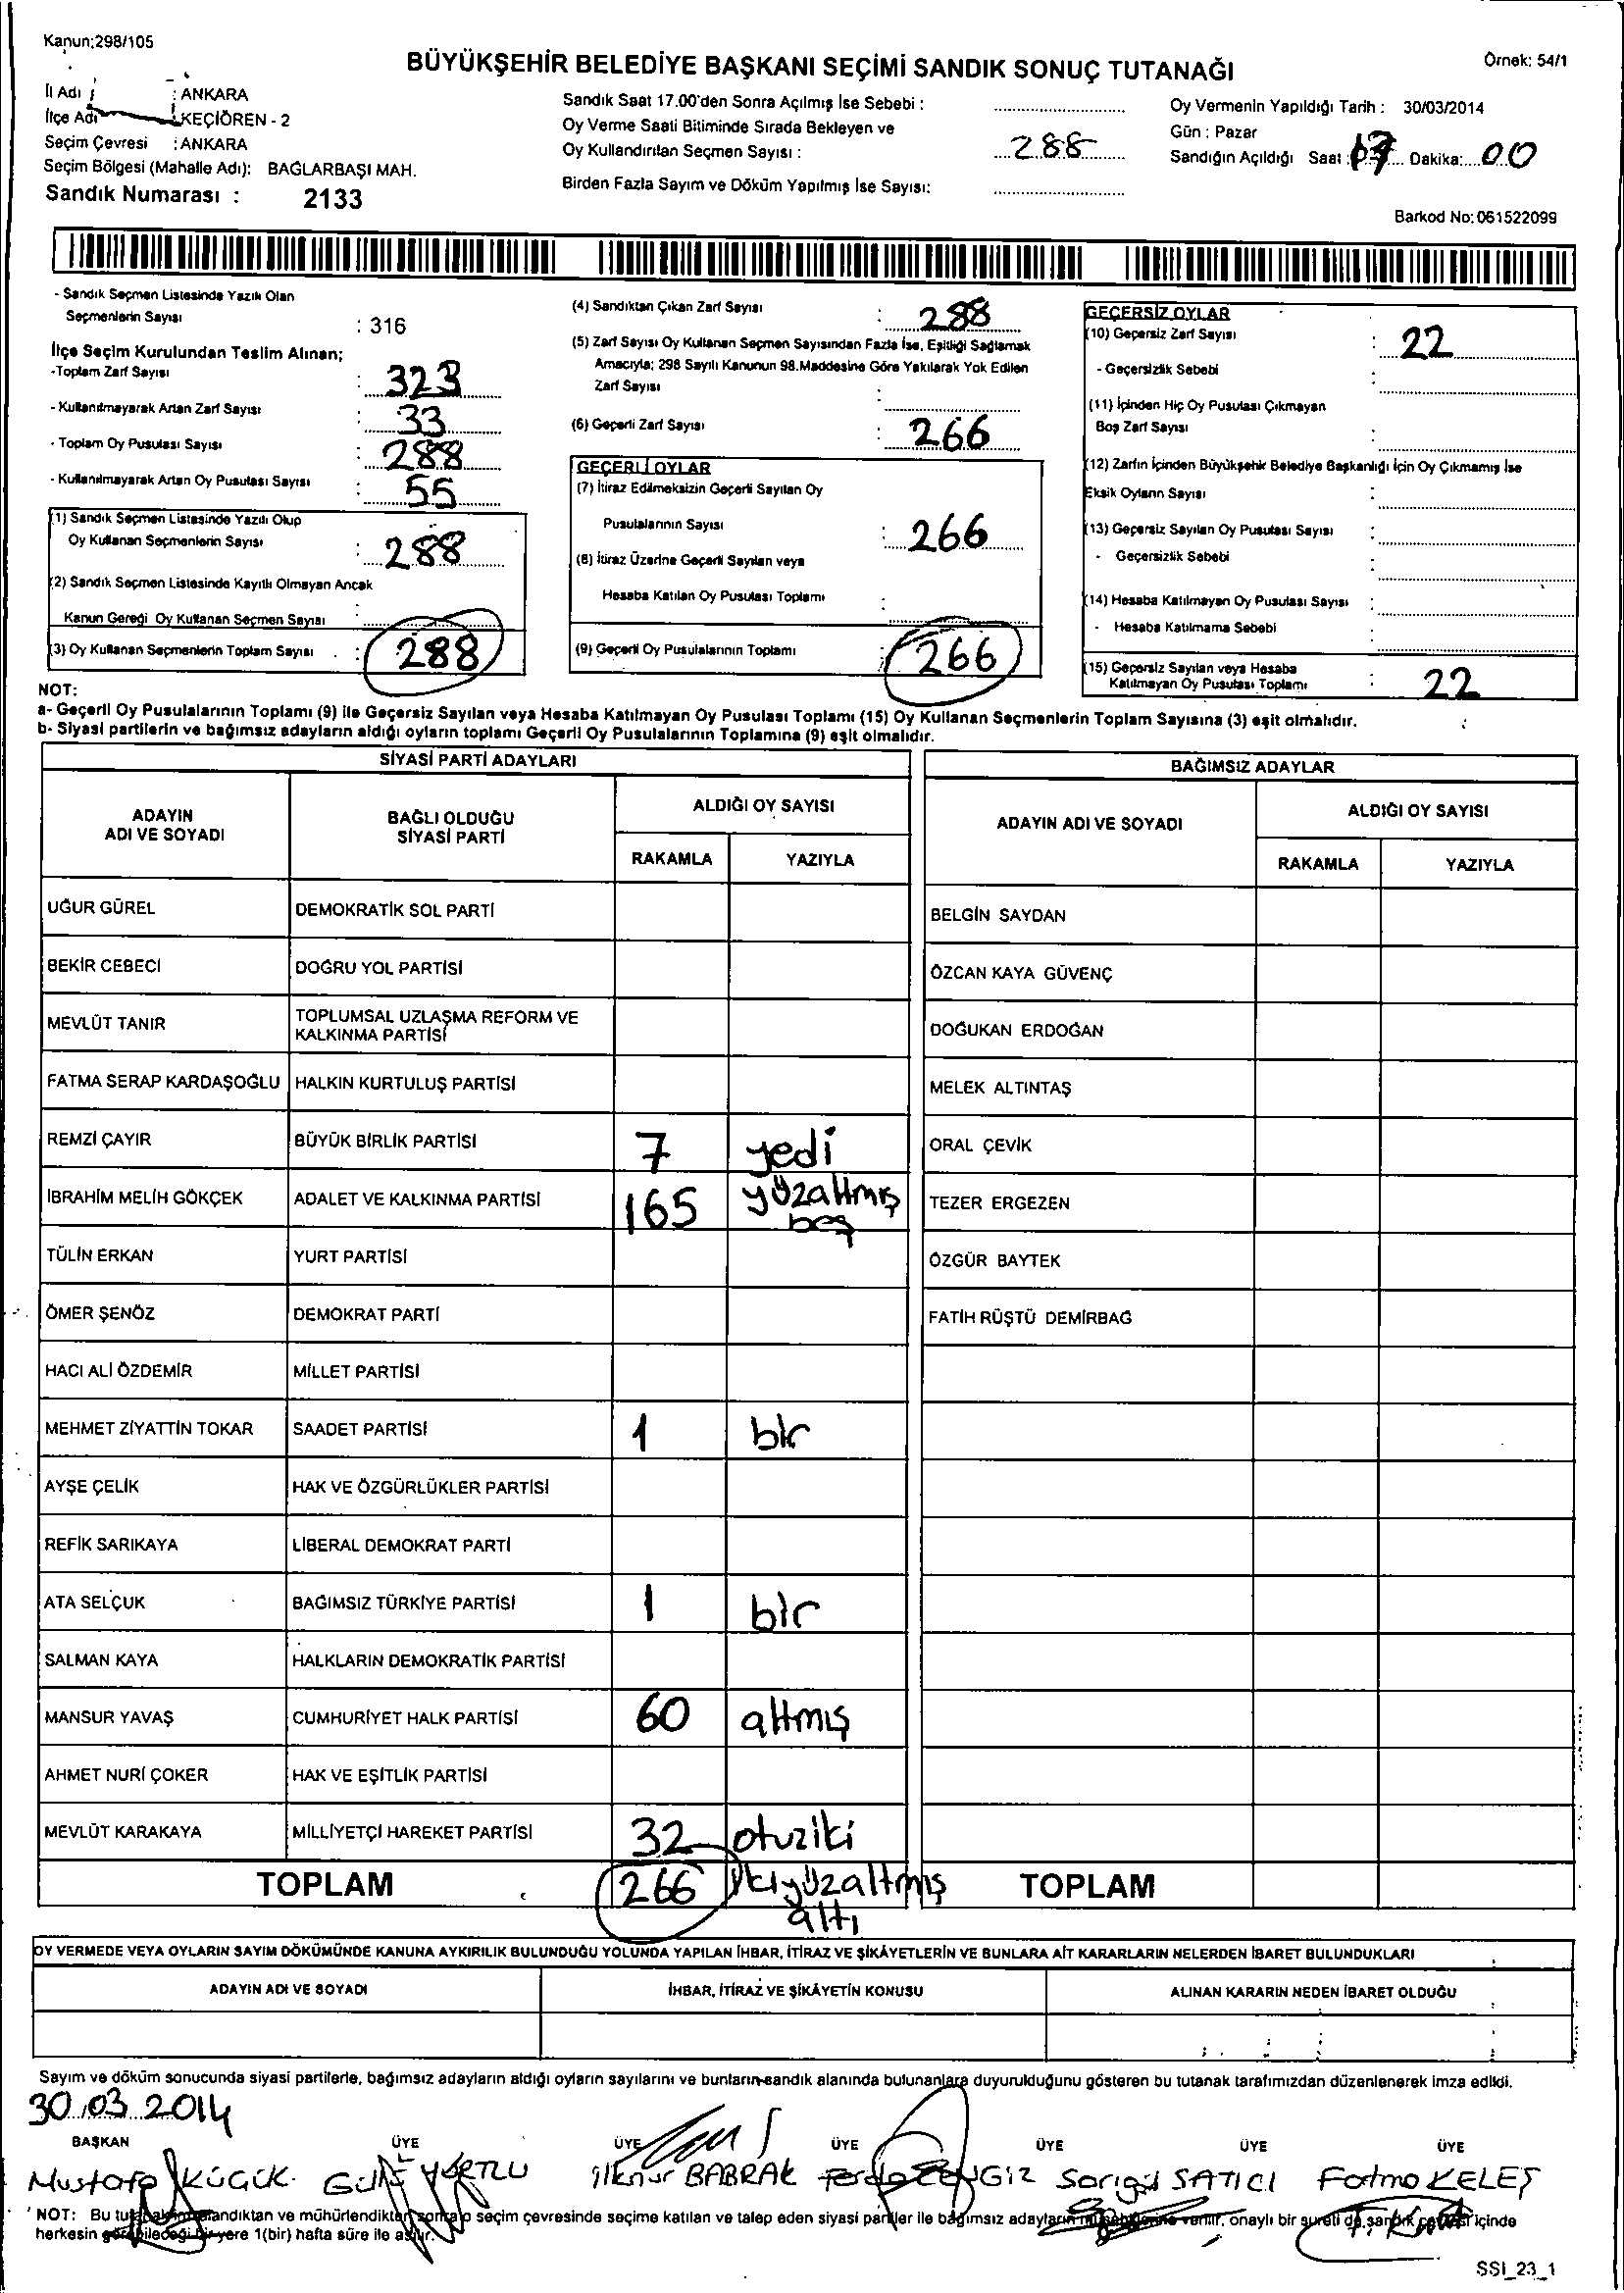 Kanun;298/105
BÜYÜKŞEHİR BELEDİYE BAŞKANI SEÇİMİ SANDIK SONUÇ TUTANAĞI
Örnek: 54/1
İl Adı : ANKARA
İlçe Adı : KEÇİÖREN - 2
Seçim Çevresi : ANKARA
Seçim Bölgesi (Mahalle Adı): BAĞLARBAŞI MAH.
Sandık Numarası : 2133
Sandık Saat 17.00'den Sonra Açılmış İse Sebebi :
Oy Verme Saati Bitiminde Sırada Bekleyen ve
Oy Kullandırılan Seçmen Sayısı : 288
Birden Fazla Sayım ve Döküm Yapılmış İse Sayısı:
Oy Vermenin Yapıldığı Tarih : 30/03/2014
Gün : Pazar
Sandığın Açıldığı Saat : 17 Dakika: 00
Barkod No: 061522099
- Sandık Seçmen Listesinde Yazılı Olan
Seçmenlerin Sayısı : 316
İlçe Seçim Kurulundan Teslim Alınan;
-Toplam Zarf Sayısı : 323
- Kullanılmayarak Artan Zarf Sayısı : 33
- Toplam Oy Pusulası Sayısı : 288
- Kullanılmayarak Artan Oy Pusulası Sayısı : 55
(1) Sandık Seçmen Listesinde Yazılı Olup
Oy Kullanan Seçmenlerin Sayısı : 288
(2) Sandık Seçmen Listesinde Kayıtlı Olmayan Ancak
Kanun Gereği Oy Kullanan Seçmen Sayısı :
(3) Oy Kullanan Seçmenlerin Toplam Sayısı : 288
(4) Sandıktan Çıkan Zarf Sayısı : 288
(5) Zarf Sayısı Oy Kullanan Seçmen Sayısından Fazla İse, Eşitliği Sağlamak
Amacıyla; 298 Sayılı Kanunun 98.Maddesine Göre Yakılarak Yok Edilen
Zarf Sayısı :
(6) Geçerli Zarf Sayısı : 266
GEÇERLİ OYLAR
(7) İtiraz Edilmeksizin Geçerli Sayılan Oy
Pusulalarının Sayısı : 266
(8) İtiraz Üzerine Geçerli Sayılan veya
Hesaba Katılan Oy Pusulası Toplamı :
(9) Geçerli Oy Pusulalarının Toplamı : 266
GEÇERSİZ OYLAR
(10) Geçersiz Zarf Sayısı : 22
- Geçersizlik Sebebi :
(11) İçinden Hiç Oy Pusulası Çıkmayan
Boş Zarf Sayısı :
(12) Zarfın İçinden Büyükşehir Belediye Başkanlığı İçin Oy Çıkmamış İse
Eksik Oyların Sayısı :
(13) Geçersiz Sayılan Oy Pusulası Sayısı :
- Geçersizlik Sebebi
(14) Hesaba Katılmayan Oy Pusulası Sayısı :
- Hesaba Katılmama Sebebi :
(15) Geçersiz Sayılan veya Hesaba
Katılmayan Oy Pusulası Toplamı : 22
NOT:
a- Geçerli Oy Pusulalarının Toplamı (9) ile Geçersiz Sayılan veya Hesaba Katılmayan Oy Pusulası Toplamı (15) Oy Kullanan Seçmenlerin Toplam Sayısına (3) eşit olmalıdır.
b- Siyasi partilerin ve bağımsız adayların aldığı oyların toplamı Geçerli Oy Pusulalarının Toplamına (9) eşit olmalıdır.
SİYASİ PARTİ ADAYLARI
ADAYIN ADI VE SOYADI BAĞLI OLDUĞU SİYASİ PARTİ ALDIĞI OY SAYISI
RAKAMLA YAZIYLA
UĞUR GÜREL DEMOKRATİK SOL PARTİ
BEKİR CEBECİ DOĞRU YOL PARTİSİ
MEVLÜT TANIR TOPLUMSAL UZLAŞMA REFORM VE KALKINMA PARTİSİ
FATMA SERAP KARDAŞOĞLU HALKIN KURTULUŞ PARTİSİ
REMZİ ÇAYIR BÜYÜK BİRLİK PARTİSİ 7 yedi
İBRAHİM MELİH GÖKÇEK ADALET VE KALKINMA PARTİSİ 165 yüzaltmış beş
TÜLİN ERKAN YURT PARTİSİ
ÖMER ŞENÖZ DEMOKRAT PARTİ
HACI ALİ ÖZDEMİR MİLLET PARTİSİ
MEHMET ZİYATTİN TOKAR SAADET PARTİSİ 1 bir
AYŞE ÇELİK HAK VE ÖZGÜRLÜKLER PARTİSİ
REFİK SARIKAYA LİBERAL DEMOKRAT PARTİ
ATA SELÇUK BAĞIMSIZ TÜRKİYE PARTİSİ 1 bir
SALMAN KAYA HALKLARIN DEMOKRATİK PARTİSİ
MANSUR YAVAŞ CUMHURİYET HALK PARTİSİ 60 altmış
AHMET NURİ ÇOKER HAK VE EŞİTLİK PARTİSİ
MEVLÜT KARAKAYA MİLLİYETÇİ HAREKET PARTİSİ 32 otuziki
TOPLAM 266 ikiyüzaltmış altı
BAĞIMSIZ ADAYLAR
ADAYIN ADI VE SOYADI ALDIĞI OY SAYISI
RAKAMLA YAZIYLA
BELGİN SAYDAN
ÖZCAN KAYA GÜVENÇ
DOĞUKAN ERDOĞAN
MELEK ALTINTAŞ
ORAL ÇEVİK
TEZER ERGEZEN
ÖZGÜR BAYTEK
FATİH RÜŞTÜ DEMİRBAĞ
TOPLAM
OY VERMEDE VEYA OYLARIN SAYIM DÖKÜMÜNDE KANUNA AYKIRILIK BULUNDUĞU YOLUNDA YAPILAN İHBAR, İTİRAZ VE ŞİKÂYETLERİN VE BUNLARA AİT KARARLARIN NELERDEN İBARET BULUNDUKLARI
ADAYIN ADI VE SOYADI İHBAR, İTİRAZ VE ŞİKÂYETİN KONUSU ALINAN KARARIN NEDEN İBARET OLDUĞU
Sayım ve döküm sonucunda siyasi partilerle, bağımsız adayların aldığı oyların sayılarını ve bunların sandık alanında bulunanlara duyurulduğunu gösteren bu tutanak tarafımızdan düzenlenerek imza edildi.
30.03.2014
BAŞKAN ÜYE ÜYE ÜYE ÜYE ÜYE ÜYE
Mustafa KÜÇÜK ilknur BABRAK Sarıgül SATICI Fatma KELEŞ
NOT: Bu sonra seçim çevresinde seçime katılan ve talep eden siyasi partiler ile bağımsız adayların verilir, onaylı bir sureti de sandık içinde
herkesin görebileceği bir yere 1(bir) hafta süre ile asılır.
SSI_23_1